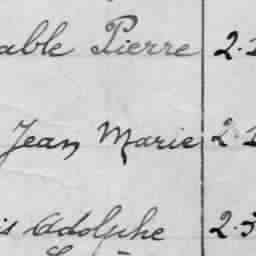 able Pierre 2.
Jean Marie 2.
is Adolphe 2.5